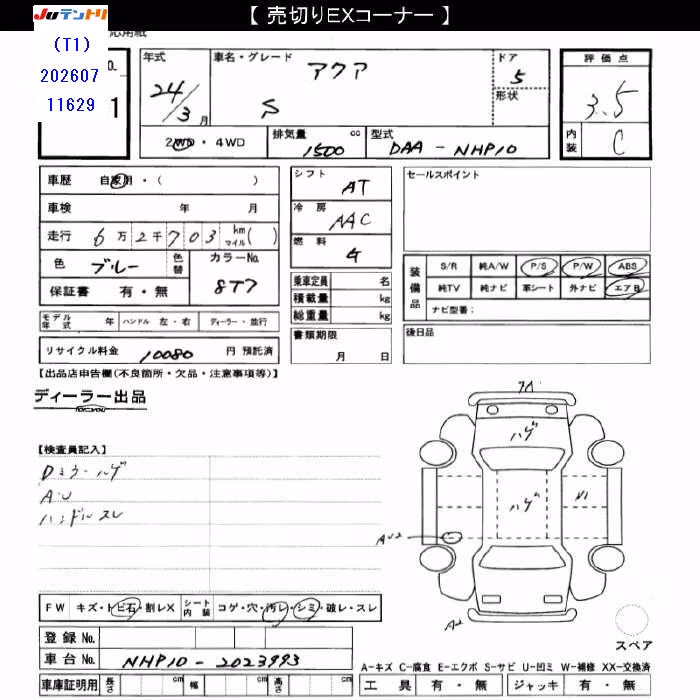 【 売切りEXコーナー 】
JUテントリ
(T1)
202607
11629
応用紙
o.
1
年式
24/3月
車名・グレード
アクア
S
ドア
5
形状
2WD・4WD
排気量 1500 cc
型式 DAA-NHP10
評価点
3.5
内装 C
車歴 自家用・( )
車検 年 月
走行 6万2千703 km マイル( )
色 ブルー 色替
カラーNo. 8T7
保証書 有・無
モデル年式 年 ハンドル 左・右 ディーラー・並行
リサイクル料金 10080 円 預託済
シフト AT
冷房 AAC
燃料 G
乗車定員 名
積載量 kg
総重量 kg
書類期限
月 日
セールスポイント
装備品
S/R 純A/W P/S P/W ABS
純TV 純ナビ 革シート 外ナビ エアB
ナビ型番:
後日品
【出品店申告欄(不良箇所・欠品・注意事項等)】
ディーラー出品
【検査員記入】
Dミラーハゲ
AU
ハンドルスレ
ハゲ
ハゲ
A1
AU2
A2
スペア
FW キズ・トビ石・割レX
シート内装 コゲ・穴・汚レ・シミ・破レ・スレ
登録No.
車台No. NHP10-2023993
車庫証明用 長さ cm 幅 cm 高さ cm
A-キズ C-腐食 E-エクボ S-サビ U-凹ミ W-補修 XX-交換済
工具 有・無 ジャッキ 有・無